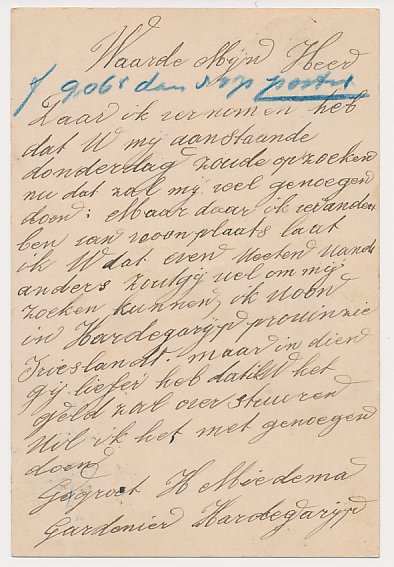 Waarde Mijn Heer
f 906 den post
Daar ik vernomen heb
dat U mij aanstaande
donderdag zoude opzoeken
nu dat zal mij veel genoegen
doen; Maar daar ik veranden
ben van woonplaats laat
ik U dat even weeten want
anders zout gij vel om mij
zoeken kunnen, ik woon
in Hardegarijp provinzie
Frieslandt. maar in dien
gij liefer heb dat ik U het
geld zal over stuuren
wil ik het met genoegen
doen
Gegroet H Miedema
Gardenier Hardegarijp